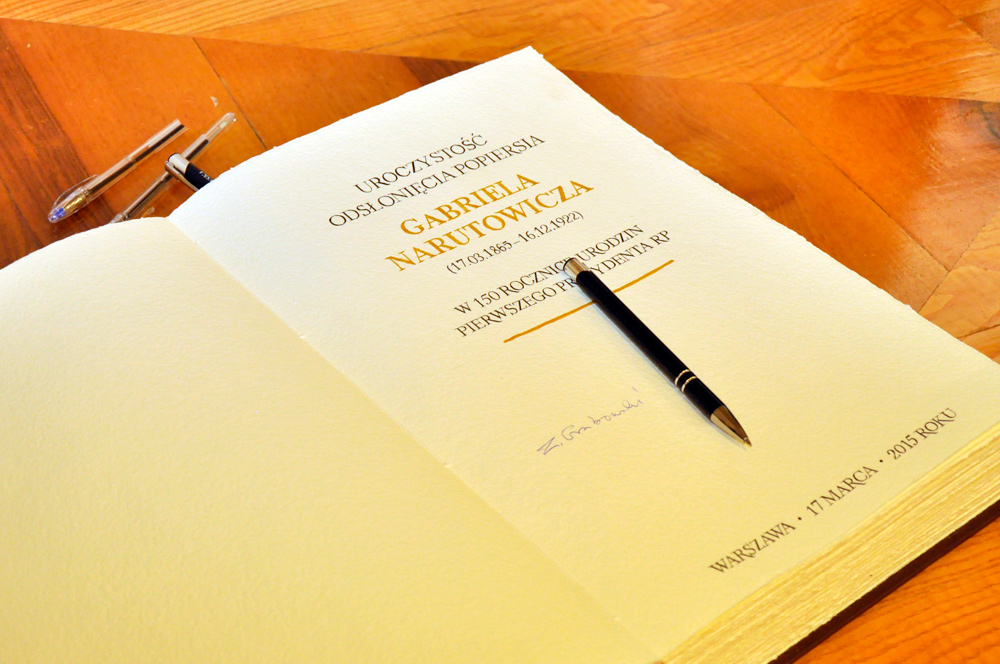 UROCZYSTOŚĆ
ODSŁONIĘCIA POPIERSIA
GABRIELA
NARUTOWICZA
(17.03.1865–16.12.1922)
W 150 ROCZNICĘ URODZIN
PIERWSZEGO PREZYDENTA RP
Z. Grabowski
WARSZAWA • 17 MARCA • 2015 ROKU